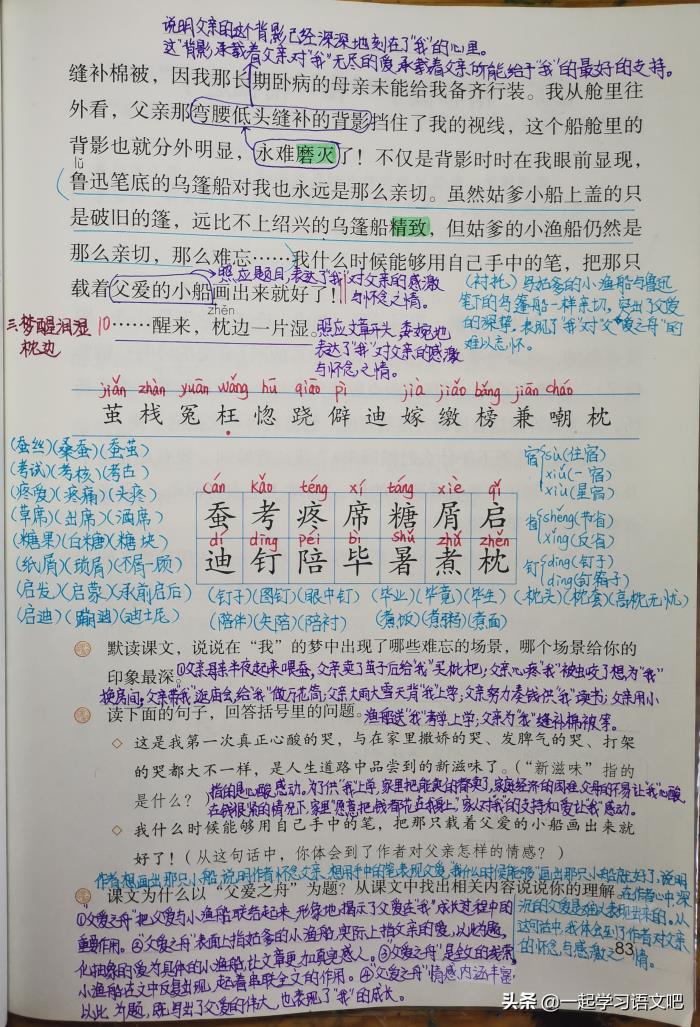 说明父亲的这个背影已经深深地刻在了"我"的心里。
这"背影"承载着父亲对"我"无尽的爱,承载着父亲所能给予"我"的最好的支持。
缝补棉被,因我那长期卧病的母亲未能给我备齐行装。我从舱里往
外看,父亲那弯腰低头缝补的背影挡住了我的视线,这个船舱里的
背影也就分外明显,永难磨灭了!不仅是背影时时在我眼前显现,
lǔ
鲁迅笔底的乌篷船对我也永远是那么亲切。虽然姑爹小船上盖的只
是破旧的篷,远比不上绍兴的乌篷船精致,但姑爹的小渔船仍然是
那么亲切,那么难忘……我什么时候能够用自己手中的笔,把那只
载着父爱的小船画出来就好了!
照应题目,表达了"我"对父亲的感激
与怀念之情。
(衬托)写姑爹的小渔船与鲁迅
笔下的乌篷船一样亲切,突出了父爱
的深挚,表现了"我"对"父爱之舟"的
难以忘怀。
zhěn
三梦醒泪湿
枕边
10……醒来,枕边一片湿。
照应文章开头,委婉地
表达了"我"对父亲的感激
与怀念之情。
jiǎn zhàn yuān wǎng hū qiāo pì jià jiǎo bǎng jiān cháo
茧 栈 冤 枉 惚 跷 僻 迪 嫁 缴 榜 兼 嘲 枕
(蚕丝)(桑蚕)(蚕茧)
(考试)(考核)(考古)
(疼爱)(疼痛)(头疼)
(草席)(出席)(酒席)
(糖果)(白糖)(糖块)
(纸屑)(琐屑)(不屑一顾)
(启发)(启蒙)(承前启后)
(启迪)(蹦迪)(迪士尼)
cán kǎo téng xí táng xiè qǐ
蚕 考 疼 席 糖 屑 启
dí dīng péi bì shǔ zhǔ zhěn
迪 钉 陪 毕 暑 煮 枕
宿 sù(住宿)
xiǔ(一宿)
xiù(星宿)
省 shěng(节省)
xǐng(反省)
钉 dīng(钉子)
dìng(钉箱子)
(钉子)(图钉)(眼中钉) (毕业)(毕竟)(毕生) (枕头)(枕套)(高枕无忧)
(陪伴)(失陪)(陪衬) (煮饭)(煮粥)(煮面)
默读课文,说说在"我"的梦中出现了哪些难忘的场景,哪个场景给你的
印象最深。
①父亲母亲半夜起来喂蚕,父亲卖了茧子后给"我"买枇杷;父亲心疼"我"被虫咬了想为"我"
换房间;父亲带"我"逛庙会,给"我"做万花筒;父亲大雨大雪天背"我"上学;父亲努力凑钱供"我"读书;父亲用小
渔船送"我"考学上学;父亲为"我"缝补棉被等。
读下面的句子,回答括号里的问题。
◇ 这是我第一次真正心酸的哭,与在家里撒娇的哭、发脾气的哭、打架
的哭都大不一样,是人生道路中品尝到的新滋味了。("新滋味"指的
是什么?)
指的是心酸感动。为了供"我"上学,家里把能卖的都卖了,家庭经济的困难父母的不易让"我"心酸,
在钱很紧的情况下,家里"愿意把钱都花在我身上",家人对"我"的支持和爱让"我"感动。
◇ 我什么时候能够用自己手中的笔,把那只载着父爱的小船画出来就
好了!(从这句话中,你体会到了作者对父亲怎样的情感?)
作者想画出那只小船,说明作者怀念父亲,想用手中的笔表现父爱,"我什么时候能够"画出那只小船就好了,说明
在作者心中深
沉的父爱是难以表现出来的。从
这句话中,我体会到了作者对父亲
的怀念与感激之情。
课文为什么以"父爱之舟"为题?从课文中找出相关内容说说你的理解。
①"父爱之舟"把父爱与小渔船联结起来,形象地揭示了父爱在"我"成长过程中的
重要作用。②"父爱之舟"表面上指姑爹的小渔船,实际上指父亲的爱,以此为题,
化抽象的爱为具体的小渔船,让文章更加真实感人。③"父爱之舟"是全文的线索,
小渔船在文中反复出现,起着串联全文的作用。④"父爱之舟"情感内涵丰富,
以此为题,既写出了父爱的伟大,也表现了"我"的成长。
83
头条 @一起学习语文吧